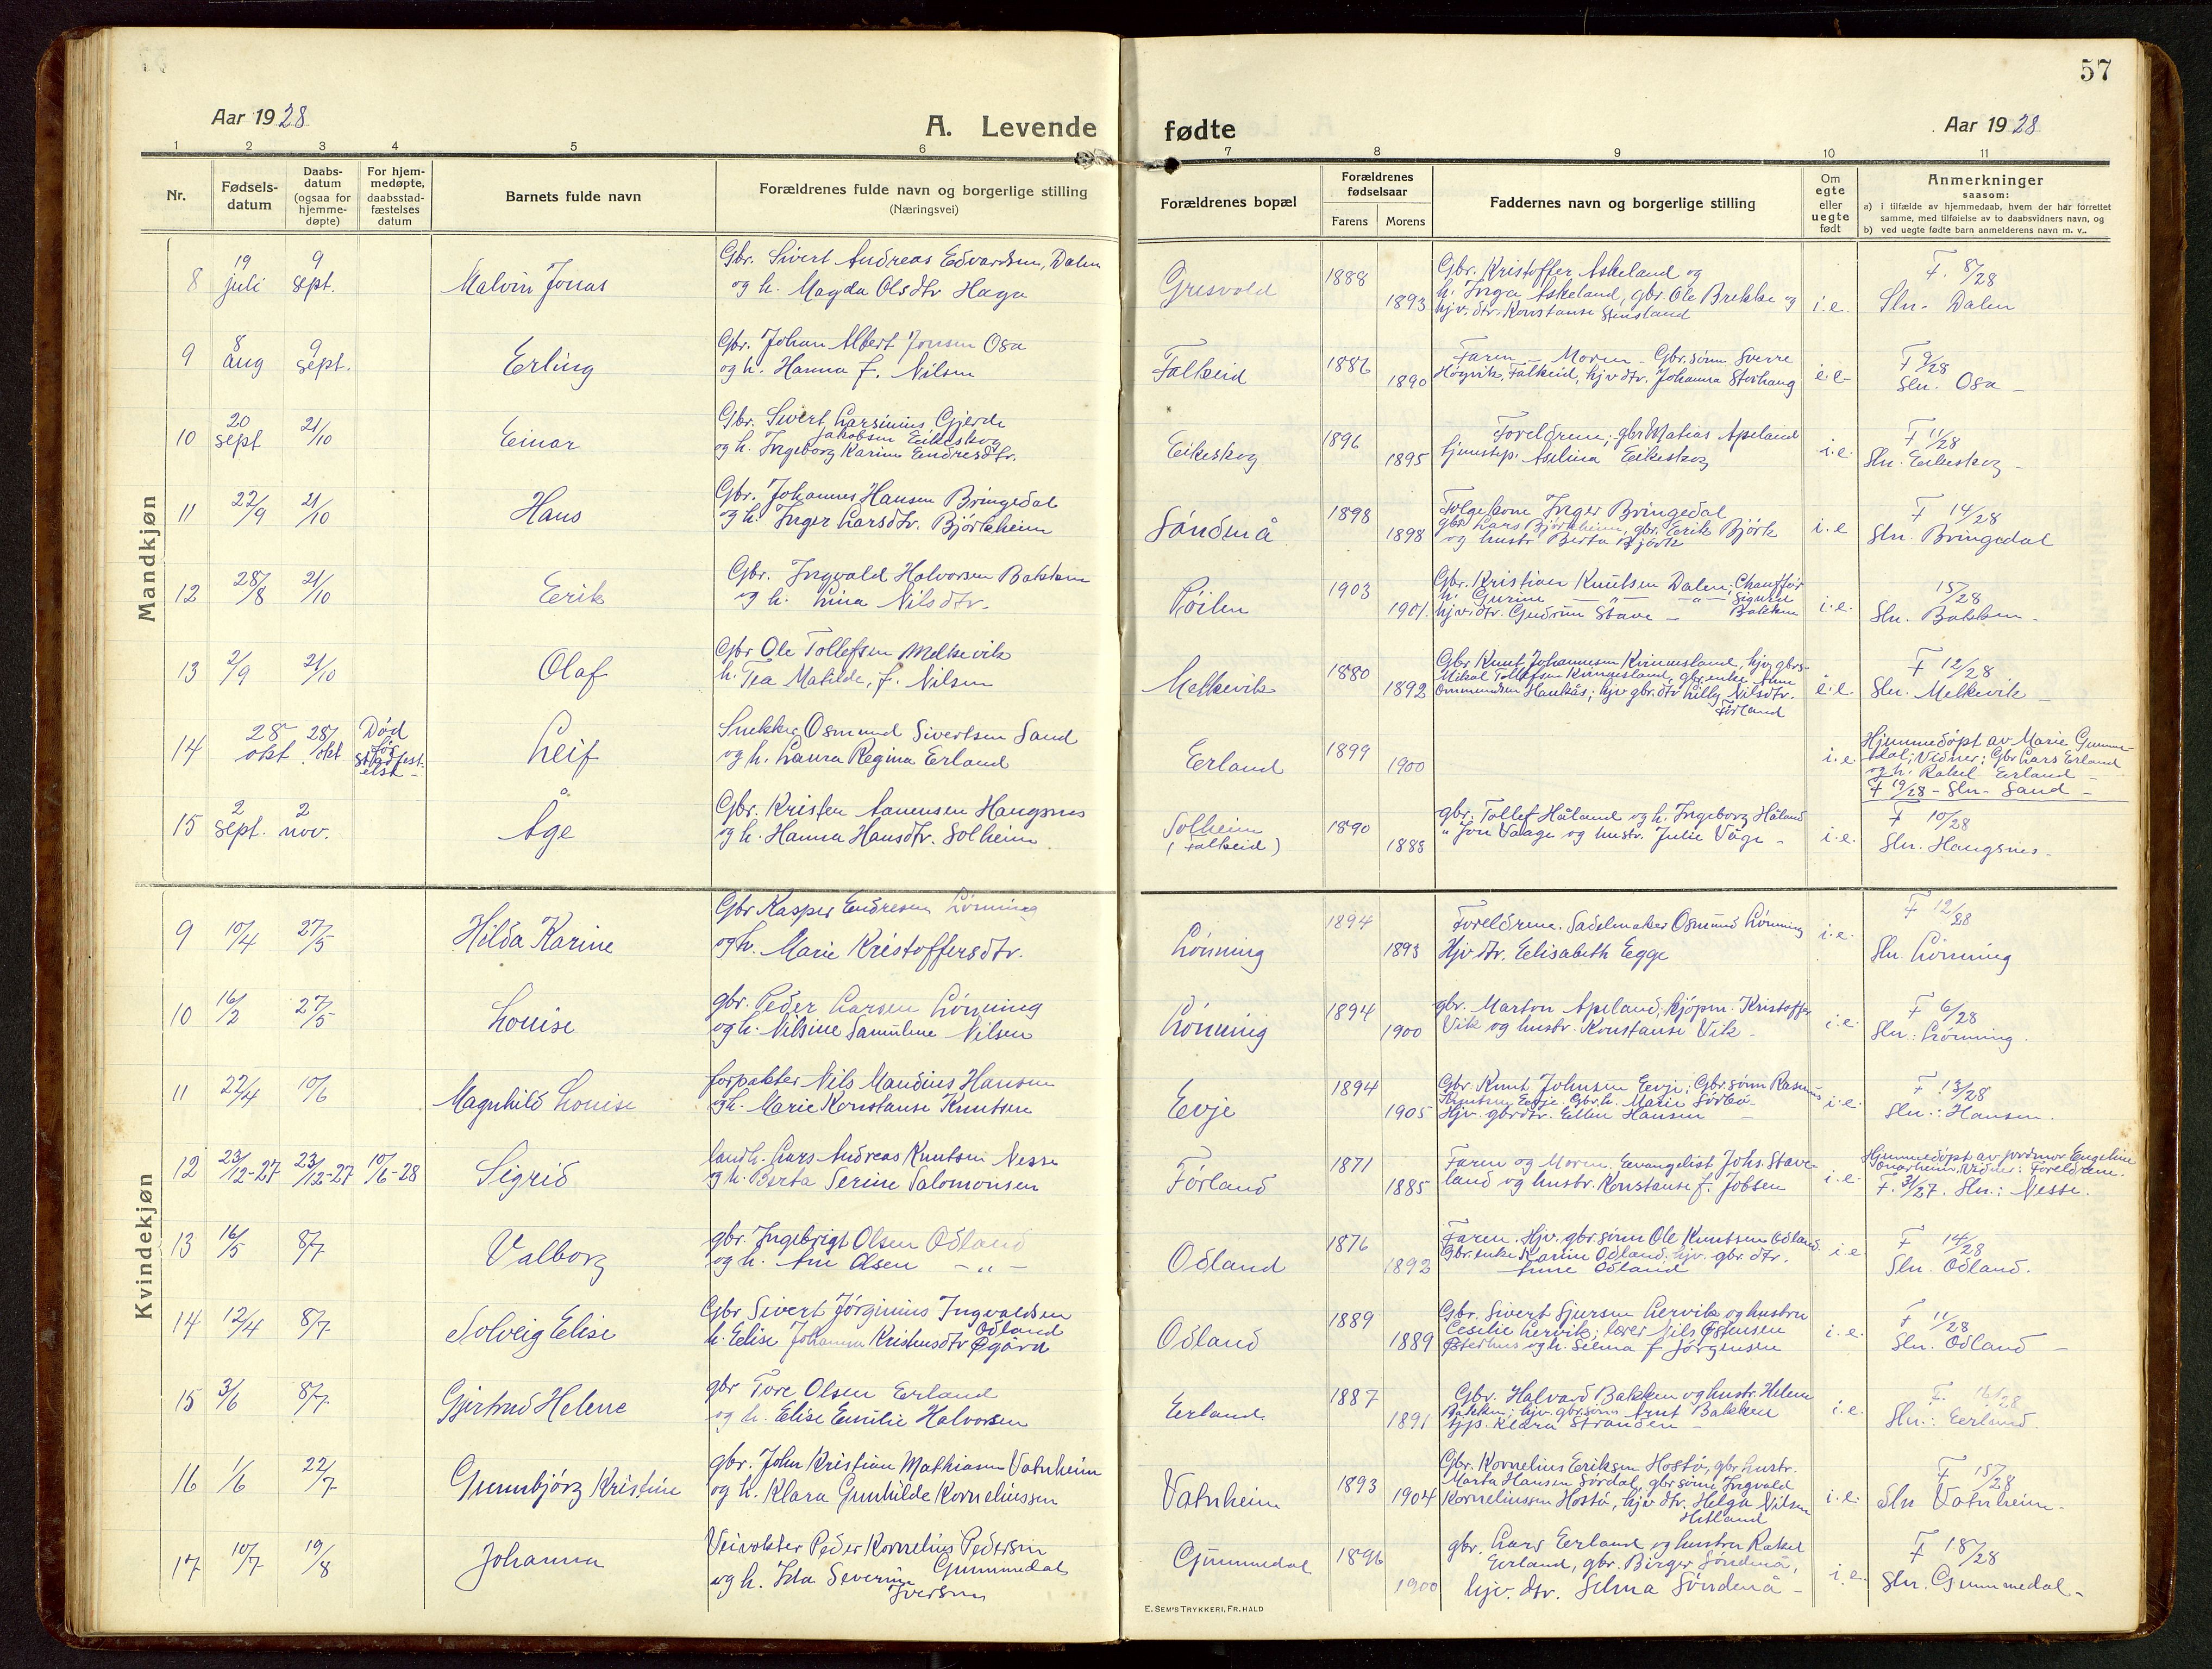 57
Aar 1928
A. Levende
fødte
Aar 1928
1 2 3 4 5 6 7 8 9 10 11
Nr.
Fødsels-
datum
Daabs-
datum
(ogsaa for
hjemme-
døpte)
For hjem-
medøpte,
daabsstad-
fæstelses
datum
Barnets fulde navn
Forældrenes fulde navn og borgerlige stilling
(Næringsvei)
Forældrenes bopæl
Forældrenes
fødselsaar
Farens Morens
Faddernes navn og borgerlige stilling
Om
egte
eller
uegte
født
Anmerkninger
saasom:
a) i tilfælde av hjemmedaab, hvem der har forrettet
samme, med tilføielse av to daabsvidners navn, og
b) ved uegte fødte barn anmelderens navn m. v..
Mandkjøn
8 19 juli 9 sept. Malvin Jonas
Gbr. Sivert Andreas Edvardsen, Dalen
og h. Magda Olsdtr Haga
Gresvold 1888 1893
Gbr. Kristoffer Askeland og
h. Inga Askeland, gbr. Ole Brekke og
hjv. dtr. Konstanse Stensland
i.e.
F. 8/28
Sln. Dalen
9 8 aug 9 sept. Erling
Gbr. Johan Albert Jonsen Osa
og h. Hanna f. Nilsen
Falkeid 1886 1890
Faren – Moren – Gbr. sønn Sverre
Høyvik, Falkeid, hjv dtr. Johanna Storhaug
i.e.
F 9/28
Sln. Osa –
10 20 sept 21/10 Einar
Gbr. Sivert Larsinius Gjerde
Jakobsen Eikeskog
og h. Ingeborg Karine Endresdtr.
Eikeskog 1896 1895
Foreldrene; gbr Matias Apeland
tjenestep. Aselina Eikeskog
i.e.
F 11/28
Sln. Eikeskog –
11 22/9 21/10 Hans
Gbr. Johannes Hansen Bringedal
og h. Inger Larsdtr. Björkheim
Söndenå 1898 1898
Inger Bringedal
gbr Lars Björkheim, gbr. Eerik Björk
og hustr Berta Björk
i.e
F 14/28
Sln. Bringedal
12 28/8 21/10 Erik
Gbr. Ingvald Halvorsen Bakken
og h. Lina Nilsdtr.
1903 1901.
Gbr. Kristian Knutsen Dalen; Chauffør
h. Gurine – " – Sigurd
hjv. dtr. Gudrun Stave – Bakken
i.e.
15/28
Sln. Bakken.
13 2/9 21/10 Olaf
Gbr Ole Tollefsen Melkevik
h. Tea Matilde, f. Nilsen
Melkevik 1880 1892
Gbr Knut Johannesen Kvinnesland, hjv. gbrs.
Mikal Tollefsen Kvinnesland, gbr. enke Anne
Ommundsen Haukås; hjv gbr. dtr Lilly Nilsdtr.
Förland
i.e.
F 12/28
Sln. Melkevik –
14 28 okt 28/okt Död
för
stadfest-
else –
Leif
Snekker Osmund Sivertsen Sand
og h. Laura Regina Erland
Eerland 1899 1900
i.e.
Hjemmedöpt av Marie Gumme-
dal; Vidner: Gbr Lars Erland
og h. Rakel Eerland –
F 19/28 – Sln – Sand –
15 2 sept. 2 nov. Åge
Gbr. Kristen Aanensen Haugsnes
og h. Hanna Hansdtr. Solheim
Solheim
(Falkeid) 1890 1888
gbr. Tollef Håland og h. Ingeborg Håland
" Jon Vaage og hustr. Julie Våge –
i.e.
F 10/28
Sln. Haugsnes –
Kvindekjøn
9 10/4 27/5 Hilda Karine
Gbr Kasper Endresen Lönning
og h. Marie Kristoffersdtr.
Lönning 1894 1893
Foreldrene. Sadelmaker Osmund Lönning
Hjv dtr. Eelisabeth Egge
i.e.
F 12/28
Sln. Lönning
10 16/2 27/5 Louise
gbr. Peder Larsen Lönning
og h. Nilsine Samuline Nilsen
Lönning 1894 1900
gbr. Marton Apeland; kjöpm. Kristoffer
Vik og hustr. Konstanse Vik –
i.e.
F 6/28
Sln.: Lönning.
11 22/4 10/6 Magnhild Louise
forpakter Nils Maudius Hansen
og h. Marie Konstanse Knutsen
Eevje 1894 1905
Gbr. Knut Johnsen Eevje; Gbr. sönn Rasmus
Knutsen Eevje. Gbr. h. Marie Sörbö –
Hjv. gbrdtr. Ellen Hansen –
i.e.
F 13/28
Sln.: Hansen.
12 23/12-27 23/12-27 10/6-28 Sigrid
landh. Lars Andreas Knutsen Nesse
og h. Berta Serine Salomonsen
Förland 1871 1885
Faren og Moren. Eevangelist Johs. Stave-
land og hustr. Konstanse f. Jobsen
i.e.
Hjemmedöpt av jordmor Engeline
Onarheim. Vidner: Foreldrene.
F. 31/27. Sln.: Nesse.
13 16/5 8/7 Valborg
gbr. Ingebrigt Olsen Odland
og h. Ane Olsen – " –
Odland 1876 1892
Faren. Hjv. gbr. sönn Ole Knutsen Odland.
Gbr. enke Karine Odland. hjv. gbr. dtr.
Anne Odland
i.e
F 14/28
Sln. Odland.
14 12/4 8/7 Solveig Elise
Gbr Sivert Jörginius Ingvaldsen
Odland
h. Elise Johanna Kristensdtr Øgård
Odland 1889 1889
Gbr. Sivert Sjursen Lervik og hustru
Cecilie Lervik; lærer Nils Østensen
Østerhus og h. Selma f Jörgensen
i.e.
F 11/28
Sln. Odland –
15 3/6 8/7 Gjertrud Helene
gbr Tore Olsen Eerland
og h. Elise Emilie Halvorsen
Eerland 1887 1891
Gbr. Halvard Bakken og hustr. Helene
Bakken; hjv. gbr. sönn Arnt Bakken
tjp. Klara Stranden –
i.e.
F. 16/28
Sln.: Eerland.
16 1/6 22/7 Gunnbjörg Kristine
gbr. John Kristian Mathiasen Vatnheim
og h. Klara Gunhilde Korneliussen
Vatnheim 1893 1904
Gbr. Kornelius Eeriksen Hostö, gbr hustr.
Marta Hansen Sördal, gbr sönn Ingvald
Korneliussen Hostö, hjv dtr. Helga Nilsen
Hetland
i.e.
F 15/28
Sln Vatnheim –
17 10/7 19/8 Johanna
Veivokter Peder Kornelius Pedersen
Gummedal
og h. Ida Severine
Iversen
Gummedal 1896 1900
gbr. Lars Eerland og hustru Rakel
Eerland, gbr. Birger Söndenå,
hjv. dtr. Selma Söndenå –
i.e.
F 18/28
Sln. Gummedal –
E. SEM'S TRYKKERI, FR.HALD